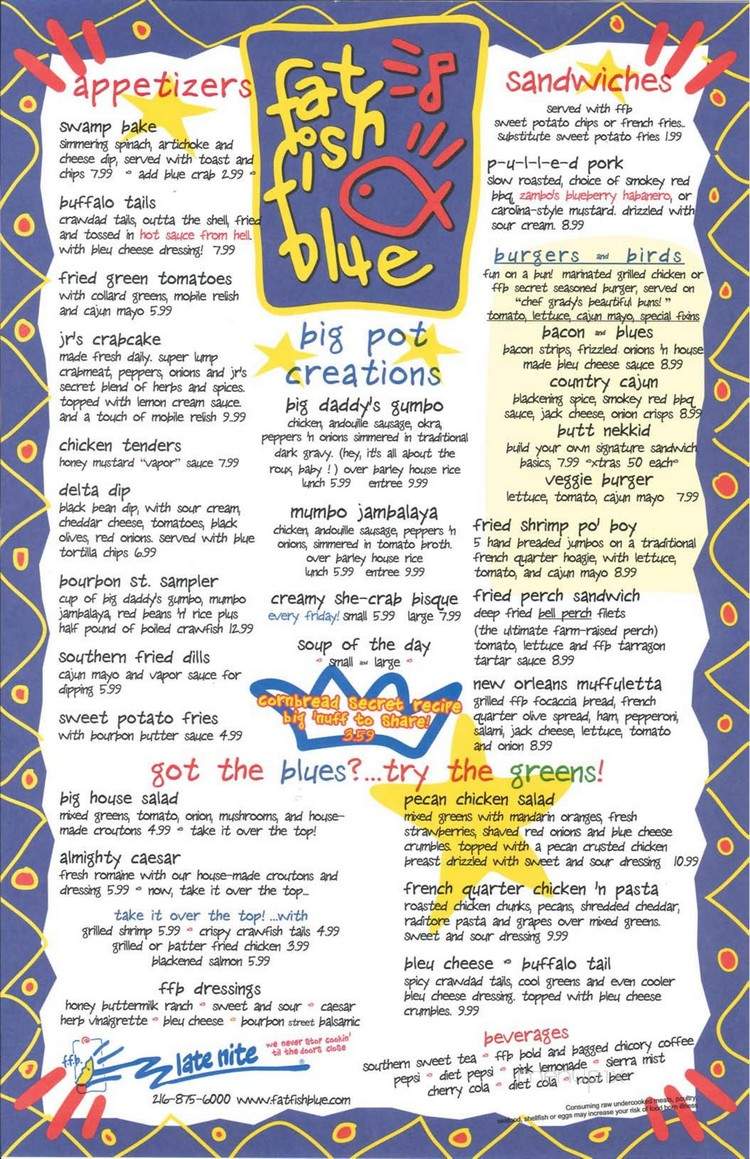 appetizers
swamp bake
simmering spinach, artichoke and
cheese dip, served with toast and
chips 7.99 • add blue crab 2.99 •
buffalo tails
crawdad tails, outta the shell, fried
and tossed in hot sauce from hell.
with bleu cheese dressing! 7.99
fried green tomatoes
with collard greens, mobile relish
and cajun mayo 5.99
jr's crabcake
made fresh daily. super lump
crabmeat, peppers, onions and jr's
secret blend of herbs and spices.
topped with lemon cream sauce.
and a touch of mobile relish 9.99
chicken tenders
honey mustard "vapor" sauce 7.99
delta dip
black bean dip, with sour cream,
cheddar cheese, tomatoes, black
olives, red onions. served with blue
tortilla chips 6.99
bourbon st. sampler
cup of big daddy's gumbo, mumbo
jambalaya, red beans 'n' rice plus
half pound of boiled crawfish 12.99
southern fried dills
cajun mayo and vapor sauce for
dipping 5.99
sweet potato fries
with bourbon butter sauce 4.99
fat
fish
blue
big pot
creations
big daddy's gumbo
chicken, andouille sausage, okra,
peppers 'n onions simmered in traditional
dark gravy. (hey, it's all about the
roux, baby ! ) over barley house rice
lunch 5.99 entree 9.99
mumbo jambalaya
chicken, andouille sausage, peppers 'n
onions, simmered in tomato broth.
over barley house rice
lunch 5.99 entree 9.99
creamy she-crab bisque
every friday! small 5.99 large 7.99
soup of the day
• small and large •
cornbread secret recipe
big 'nuff to share!
3.59
sandwiches
served with ffb
sweet potato chips or french fries..
substitute sweet potato fries 1.99
p-u-l-l-e-d pork
slow roasted, choice of smokey red
bbq, zambo's blueberry habanero, or
carolina-style mustard. drizzled with
sour cream. 8.99
burgers and birds
fun on a bun! marinated grilled chicken or
ffb secret seasoned burger, served on
"chef grady's beautiful buns! "
tomato, lettuce, cajun mayo, special fixins
bacon and blues
bacon strips, frizzled onions 'n house
made bleu cheese sauce 8.99
country cajun
blackening spice, smokey red bbq
sauce, jack cheese, onion crisps 8.99
butt nekkid
build your own signature sandwich
basics, 7.99 •xtras .50 each•
veggie burger
lettuce, tomato, cajun mayo 7.99
fried shrimp po' boy
5 hand breaded jumbos on a traditional
french quarter hoagie, with lettuce,
tomato, and cajun mayo 8.99
fried perch sandwich
deep fried bell perch filets
(the ultimate farm-raised perch)
tomato, lettuce and ffb tarragon
tartar sauce 8.99
new orleans muffuletta
grilled ffb focaccia bread, french
quarter olive spread, ham, pepperoni,
salami, jack cheese, lettuce, tomato
and onion 8.99
got the blues?...try the greens!
big house salad
mixed greens, tomato, onion, mushrooms, and house-
made croutons 4.99 • take it over the top!
almighty caesar
fresh romaine with our house-made croutons and
dressing 5.99 • now, take it over the top...
take it over the top! ...with
grilled shrimp 5.99 • crispy crawfish tails 4.99
grilled or batter fried chicken 3.99
blackened salmon 5.99
ffb dressings
honey buttermilk ranch • sweet and sour • caesar
herb vinaigrette • bleu cheese • bourbon street balsamic
pecan chicken salad
mixed greens with mandarin oranges, fresh
strawberries, shaved red onions and blue cheese
crumbles. topped with a pecan crusted chicken
breast drizzled with sweet and sour dressing 10.99
french quarter chicken 'n pasta
roasted chicken chunks, pecans, shredded cheddar,
raditore pasta and grapes over mixed greens.
sweet and sour dressing 9.99
bleu cheese • buffalo tail
spicy crawdad tails, cool greens and even cooler
bleu cheese dressing. topped with bleu cheese
crumbles. 9.99
beverages
southern sweet tea • ffb bold and bagged chicory coffee
pepsi • diet pepsi • pink lemonade • sierra mist
cherry cola • diet cola • root beer
f.f.b.
late nite
we never stop cookin'
'til the doors close
216-875-6000 www.fatfishblue.com
Consuming raw undercooked meats, poultry,
seafood, shellfish or eggs may increase your risk of food born illness